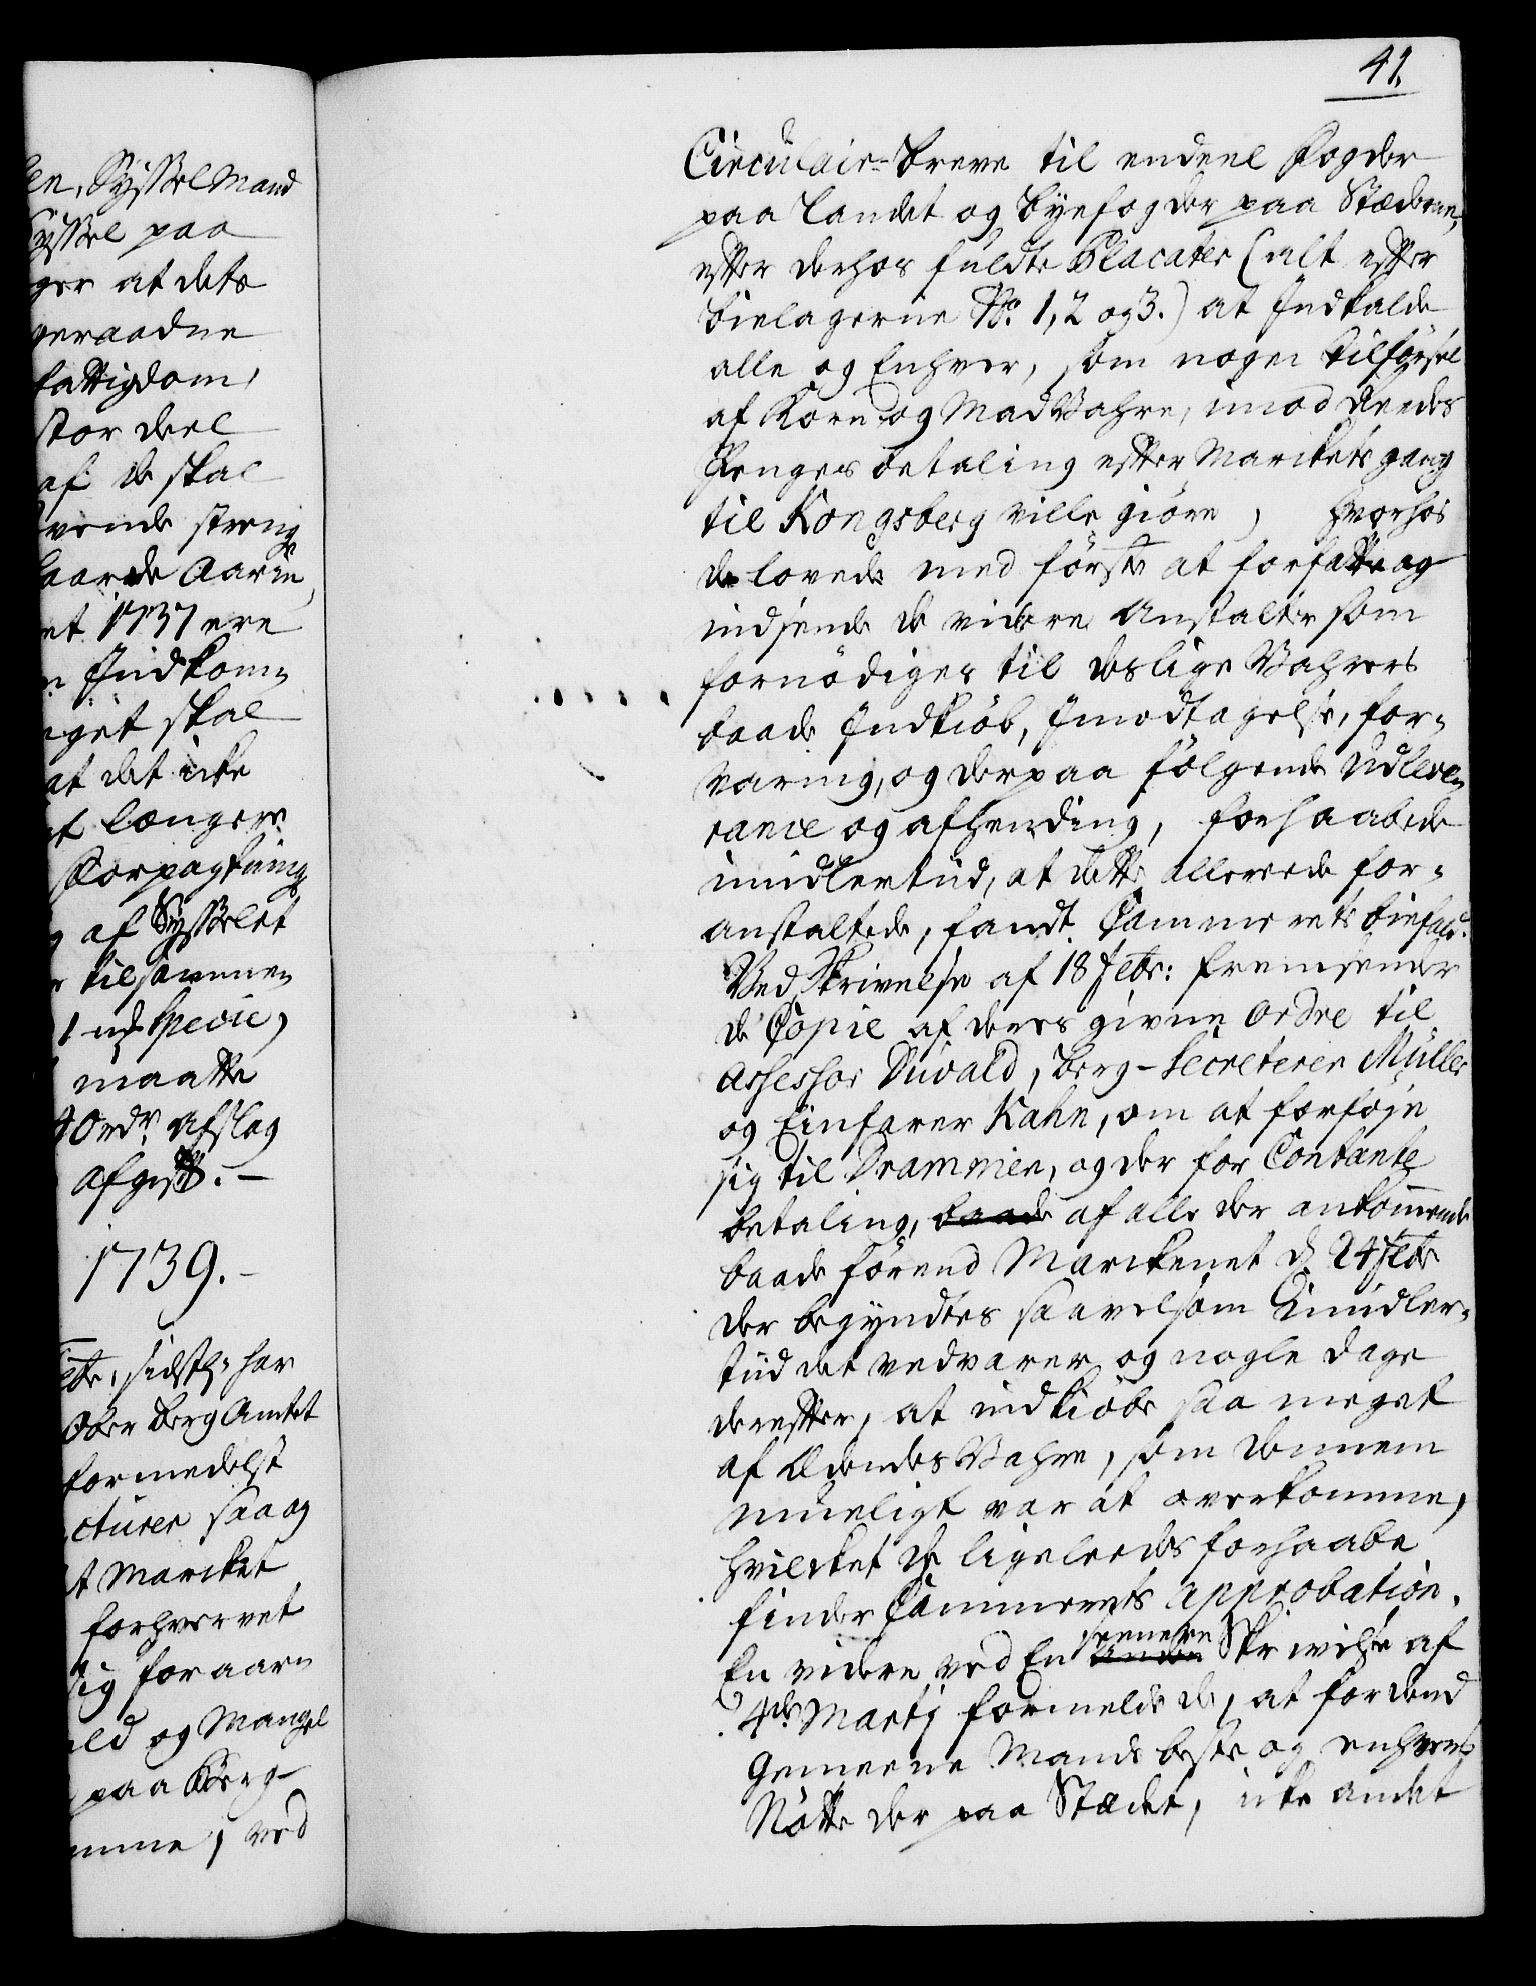 len, Sysselmand
Syssel paa
ger at dets
geraadne
fattigdom,
stor deel
af de skal
vende streng
haarde Aarin,
et 1737 ere
n Indkom-
get skal
at det icke
af længere
Forpagtning
g af Sysselet
r tilsammen
1 ndr Specie,
maatte
40 rdr. Afslag
afgift. -
1739. -
sidstl: har
Ober Berg Amtet
formedelst
cturer saa og
t Marcket
forhvervet
sig foraar-
ld og Mangel
paa Korg-
mme, ved
41.
Circulair-breve til endeel Fogder
paa Landet og Byefogder paa Stæderne,
efter derhos fuldte Placater (alt efter
bielagerne No. 1, 2 og 3.) at Indkalde
alle og Enhver, som nogen tilförsel
af Korn og Mad Vahre, imod Reede
Penges betaling efter Marckets gang
til Kongsberg ville giöre, hvorhos
de lovede med förste at forfatte og
indsende de videre Anstalter som
fornödiges til deslige Vahrers
baade Indkiöb, Imodtagelse, for-
varing, og derpaa fölgende Udleve-
rance og afhending, forhaabede
imidlertiid, at dette allerede for-
anstaltede, fandt Cammerets biefald.
Ved Skrivelse af 18 Febr: fremsender
de Copie af deres givne Ordre til
Assessor Duvald, Berg-Secreterer Müller
og Einfarer Kahn, om at forföje
sig til Drammen, og der for Contante
betaling, baade af alle der ankommende
baade förend Marckenet d. 24 Febr
der begyndtes saavelsom Imidler-
tiid det vedvarer og nogle dage
derefter, at indkiöbe saa meget
af Ædendes Vahre, som dennem
mueligt var at overkomme,
hvilcket de ligeleedes forhaabe
finder Cammerets Approbation.
En videre ved En Anden seenere Skrivelse af
4de Martj formelde de, at for dend
Gemeene Mands beste og enhvers
Nötte der paa Stædet, icke andet